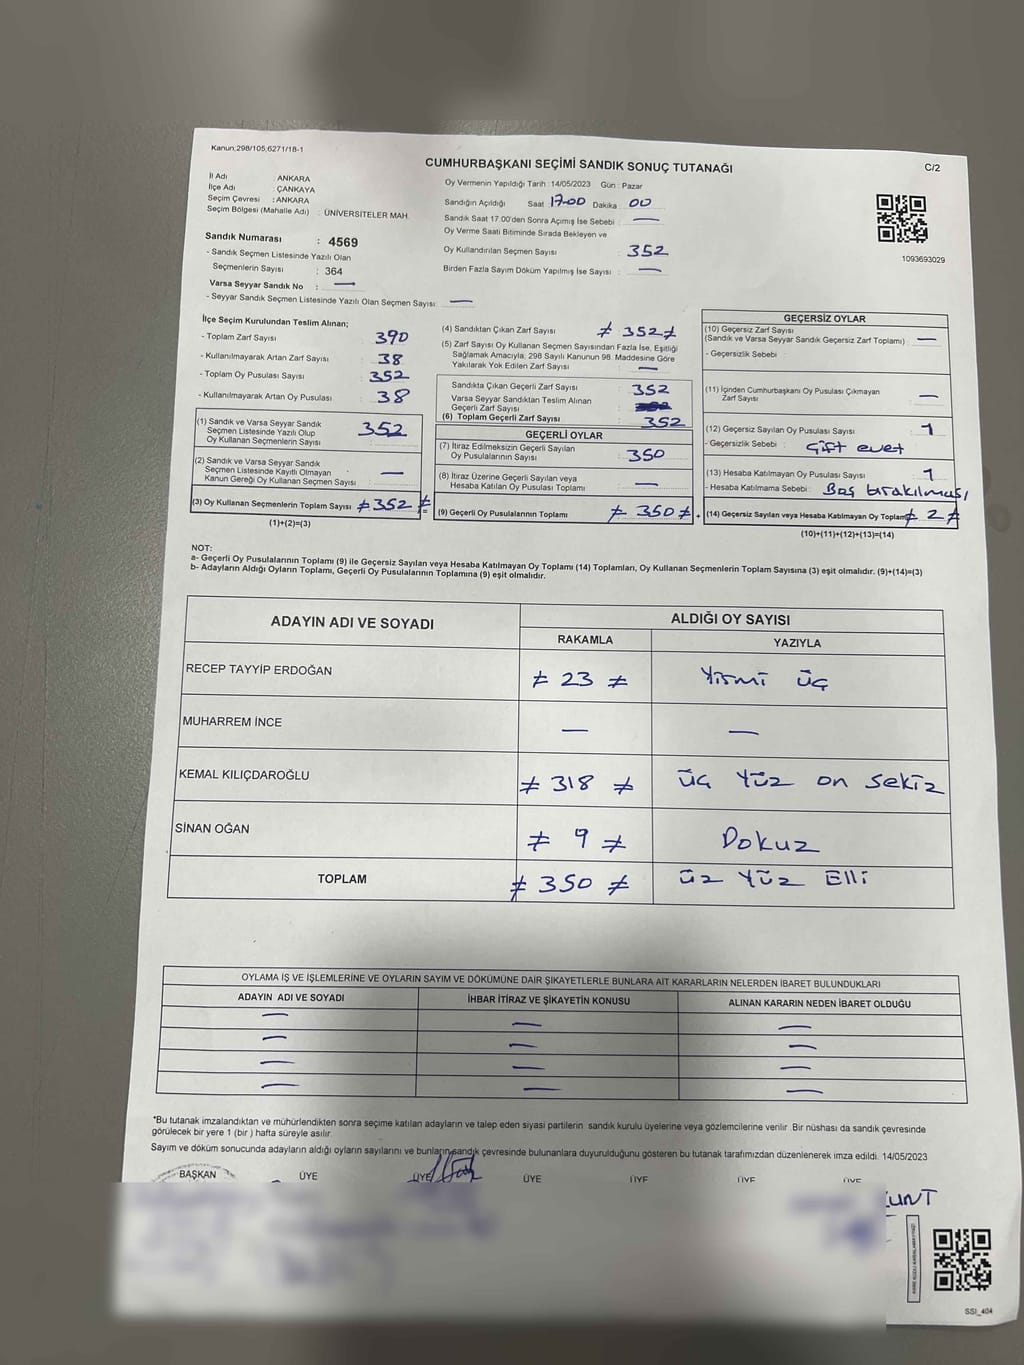 Kanun;298/105,6271/18-1
CUMHURBAŞKANI SEÇİMİ SANDIK SONUÇ TUTANAĞI
C/2
İl Adı ANKARA
İlçe Adı : ÇANKAYA
Seçim Çevresi : ANKARA
Seçim Bölgesi (Mahalle Adı) : ÜNİVERSİTELER MAH.
Sandık Numarası : 4569
- Sandık Seçmen Listesinde Yazılı Olan
Seçmenlerin Sayısı : 364
Varsa Seyyar Sandık No : —
- Seyyar Sandık Seçmen Listesinde Yazılı Olan Seçmen Sayısı: —
Oy Vermenin Yapıldığı Tarih : 14/05/2023 Gün : Pazar
Sandığın Açıldığı Saat 17.00 Dakika 00
Sandık Saat 17:00'den Sonra Açımış İse Sebebi : —
Oy Verme Saati Bitiminde Sırada Bekleyen ve
Oy Kullandırılan Seçmen Sayısı : 352
Birden Fazla Sayım Döküm Yapılmış İse Sayısı : —
1093693029
İlçe Seçim Kurulundan Teslim Alınan;
- Toplam Zarf Sayısı : 390
- Kullanılmayarak Artan Zarf Sayısı : 38
- Toplam Oy Pusulası Sayısı : 352
- Kullanılmayarak Artan Oy Pusulası : 38
(1) Sandık ve Varsa Seyyar Sandık
Seçmen Listesinde Yazılı Olup
Oy Kullanan Seçmenlerin Sayısı : 352
(2) Sandık ve Varsa Seyyar Sandık
Seçmen Listesinde Kayıtlı Olmayan
Kanun Gereği Oy Kullanan Seçmen Sayısı : —
(3) Oy Kullanan Seçmenlerin Toplam Sayısı ≠ 352 ≠
(1)+(2)=(3)
(4) Sandıktan Çıkan Zarf Sayısı ≠ 352 ≠
(5) Zarf Sayısı Oy Kullanan Seçmen Sayısından Fazla İse, Eşitliği
Sağlamak Amacıyla; 298 Sayılı Kanunun 98. Maddesine Göre
Yakılarak Yok Edilen Zarf Sayısı : —
Sandıkta Çıkan Geçerli Zarf Sayısı : 352
Varsa Seyyar Sandıktan Teslim Alınan
Geçerli Zarf Sayısı :
(6) Toplam Geçerli Zarf Sayısı : 352
GEÇERLİ OYLAR
(7) İtiraz Edilmeksizin Geçerli Sayılan
Oy Pusulalarının Sayısı : 350
(8) İtiraz Üzerine Geçerli Sayılan veya
Hesaba Katılan Oy Pusulası Toplamı : —
(9) Geçerli Oy Pusulalarının Toplamı ≠ 350 ≠
GEÇERSİZ OYLAR
(10) Geçersiz Zarf Sayısı
(Sandık ve Varsa Seyyar Sandık Geçersiz Zarf Toplamı) : —
- Geçersizlik Sebebi :
(11) İçinden Cumhurbaşkanı Oy Pusulası Çıkmayan
Zarf Sayısı : —
(12) Geçersiz Sayılan Oy Pusulası Sayısı : 1
- Geçersizlik Sebebi : Çift evet
(13) Hesaba Katılmayan Oy Pusulası Sayısı : 1
- Hesaba Katılmama Sebebi : Boş bırakılması
(14) Geçersiz Sayılan veya Hesaba Katılmayan Oy Toplam ≠ 2 ≠
(10)+(11)+(12)+(13)=(14)
NOT:
a- Geçerli Oy Pusulalarının Toplamı (9) ile Geçersiz Sayılan veya Hesaba Katılmayan Oy Toplamı (14) Toplamları, Oy Kullanan Seçmenlerin Toplam Sayısına (3) eşit olmalıdır. (9)+(14)=(3)
b- Adayların Aldığı Oyların Toplamı, Geçerli Oy Pusulalarının Toplamına (9) eşit olmalıdır.
ADAYIN ADI VE SOYADI
ALDIĞI OY SAYISI
RAKAMLA YAZIYLA
RECEP TAYYİP ERDOĞAN ≠ 23 ≠ Yirmi üç
MUHARREM İNCE — —
KEMAL KILIÇDAROĞLU ≠ 318 ≠ üç Yüz on sekiz
SİNAN OĞAN ≠ 9 ≠ Dokuz
TOPLAM ≠ 350 ≠ üz Yüz Elli
OYLAMA İŞ VE İŞLEMLERİNE VE OYLARIN SAYIM VE DÖKÜMÜNE DAİR ŞİKAYETLERLE BUNLARA AİT KARARLARIN NELERDEN İBARET BULUNDUKLARI
ADAYIN ADI VE SOYADI İHBAR İTİRAZ VE ŞİKAYETİN KONUSU ALINAN KARARIN NEDEN İBARET OLDUĞU
— — —
— — —
— — —
— — —
*Bu tutanak imzalandıktan ve mühürlendikten sonra seçime katılan adayların ve talep eden siyasi partilerin sandık kurulu üyelerine veya gözlemcilerine verilir. Bir nüshası da sandık çevresinde
görülecek bir yere 1 (bir ) hafta süreyle asılır.
Sayım ve döküm sonucunda adayların aldığı oyların sayılarını ve bunların sandık çevresinde bulunanlara duyurulduğunu gösteren bu tutanak tarafımızdan düzenlenerek imza edildi. 14/05/2023
BAŞKAN ÜYE ÜYE ÜYE ÜYE ÜYE ÜYE
KUNT
SSI_404